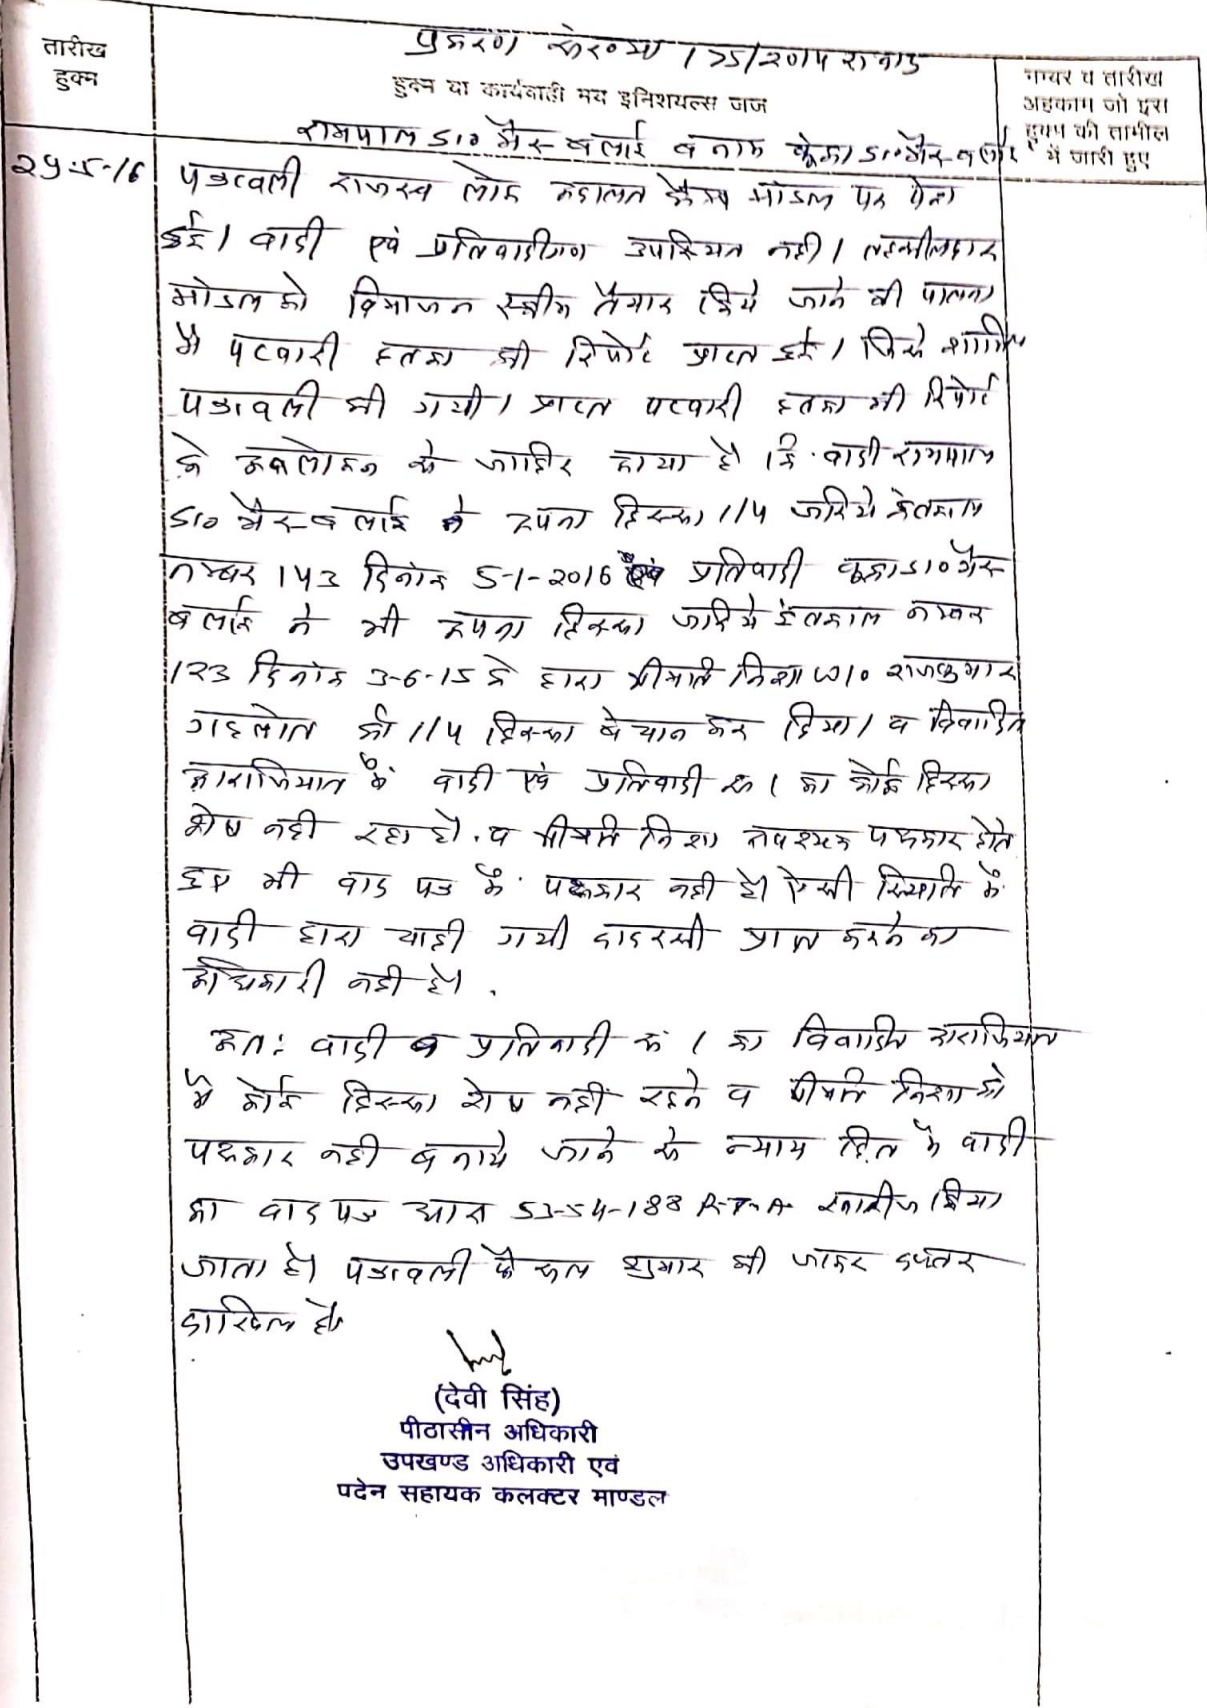 प्रकरण संख्या 155/2014 रा वाद
तारीख
हुक्म
हुक्म या कार्यवाही मय इनिशयल्स जज
नम्बर व तारीख
अहकाम जो इस
हुक्म की तामील
में जारी हुए
रामपाल S/० भैरू बलाई बनाम S/० भैरू बलाई
29-5-16
पत्रावली राजस्व लोक अदालत कैम्प मांडल पर पेश
हुई। वादी एवं प्रतिवादीगण उपस्थित नही। तहसीलदार
मांडल को विभाजन स्कीम तैयार किये जाने की पालना
मे पटवारी हलका की रिपोर्ट प्राप्त हुई। जिसे शामिल
पत्रावली की गयी। प्राप्त पटवारी हलका की रिपोर्ट
के अवलोकन से जाहिर आया है कि वादी रामपाल
S/० भैरू बलाई ने अपना हिस्सा 1/4 जरिये इंतकाल
नम्बर 143 दिनांक 5-1-2016 एवं प्रतिवादी S/० भैरू
बलाई ने भी अपना हिस्सा जरिये इंतकाल नम्बर
123 दिनांक 3-6-15 के द्वारा श्रीमति निशा W/० राजकुमार
गहलोत को 1/4 हिस्सा बेचान कर दिया। व विवादित
आराजियात में वादी एवं प्रतिवादी सं 1 का कोई हिस्सा
शेष नही रहा है. व श्रीमति निशा आवश्यक पक्षकार होते
हुए भी वाद पत्र में पक्षकार नही है। ऐसी स्थिति में
वादी द्वारा चाही गयी दादरसी प्राप्त करने का
अधिकारी नही है।
अतः वादी व प्रतिवादी सं 1 का विवादित आराजियात
मे कोई हिस्सा शेष नहीं रहने व श्रीमति निशा को
पक्षकार नही बनाये जाने से न्याय हित में वादी
का वाद पत्र धारा 53-54-188 R.T.A. खारीज किया
जाता है। पत्रावली फैसल शुमार की जाकर दफ्तर
दाखिल हो
(देवी सिंह)
पीठासीन अधिकारी
उपखण्ड अधिकारी एवं
पदेन सहायक कलक्टर माण्डल